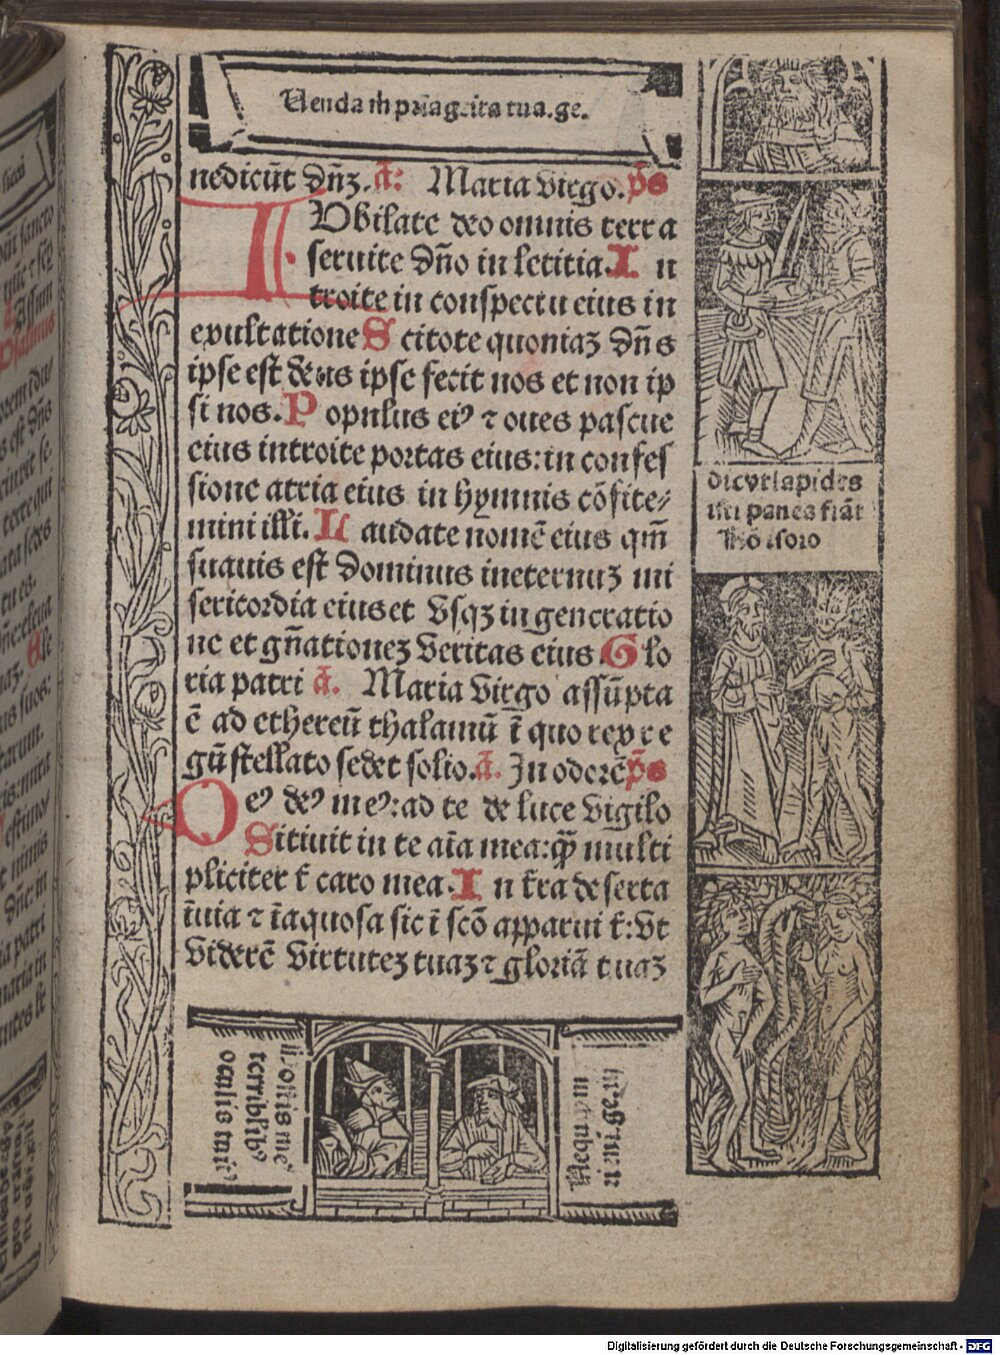 Uenda m̄ p̄mage̅ita tua.ge.
nedicūt dn̄ꝫ. ā: Maria virgo. ps̄
IVbilate deo omnis terra
seruite dn̄o in letitia. In
troite in conspectu eius in
exultatione Scitote quoniaꝫ dn̄s
ipse est deus ipse fecit nos et non ip
si nos. Populus eiꝰ ⁊ oues pascue
eius introite portas eius: in confes
sione atria eius in hymnis cōfite⸗
mini illi. Laudate nomē eius qm̄
suauis est Dominus ineternuꝫ mi
sericordia eius et vsqꝫ in generatio
ne et gn̄ationeꝫ veritas eius. Glo
ria patri ā. Maria virgo assūpta
ē ad ethereū thalamū ī quo rex re
gū stellato sedet solio. ā. In odorē ps̄
Oeꝰ deꝰ meꝰ: ad te de luce vigilo
Sitiuit in te aīa mea: qꝫ multi
pliciter t̄ caro mea. In t̄ra deserta
īuia ⁊ īaquosa sic ī scō apparui t̄: vt
viderē virtuteꝫ tuaꝫ ⁊ gloriā tuaꝫ
dic vt lapides
isti panes fiāt
terriblibꝰ
oculis